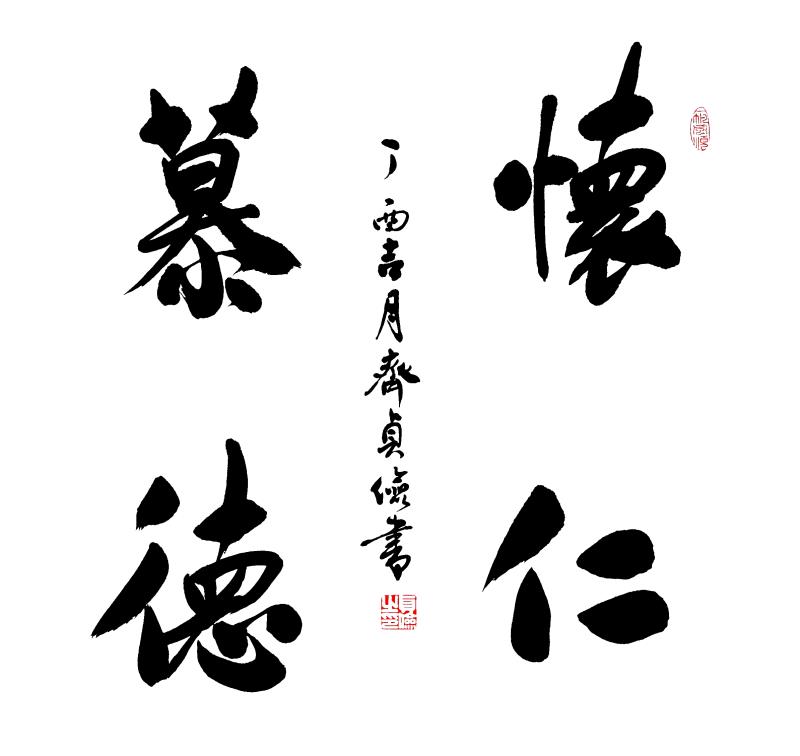 懷仁
慕德
丁酉吉月齊貞儉書